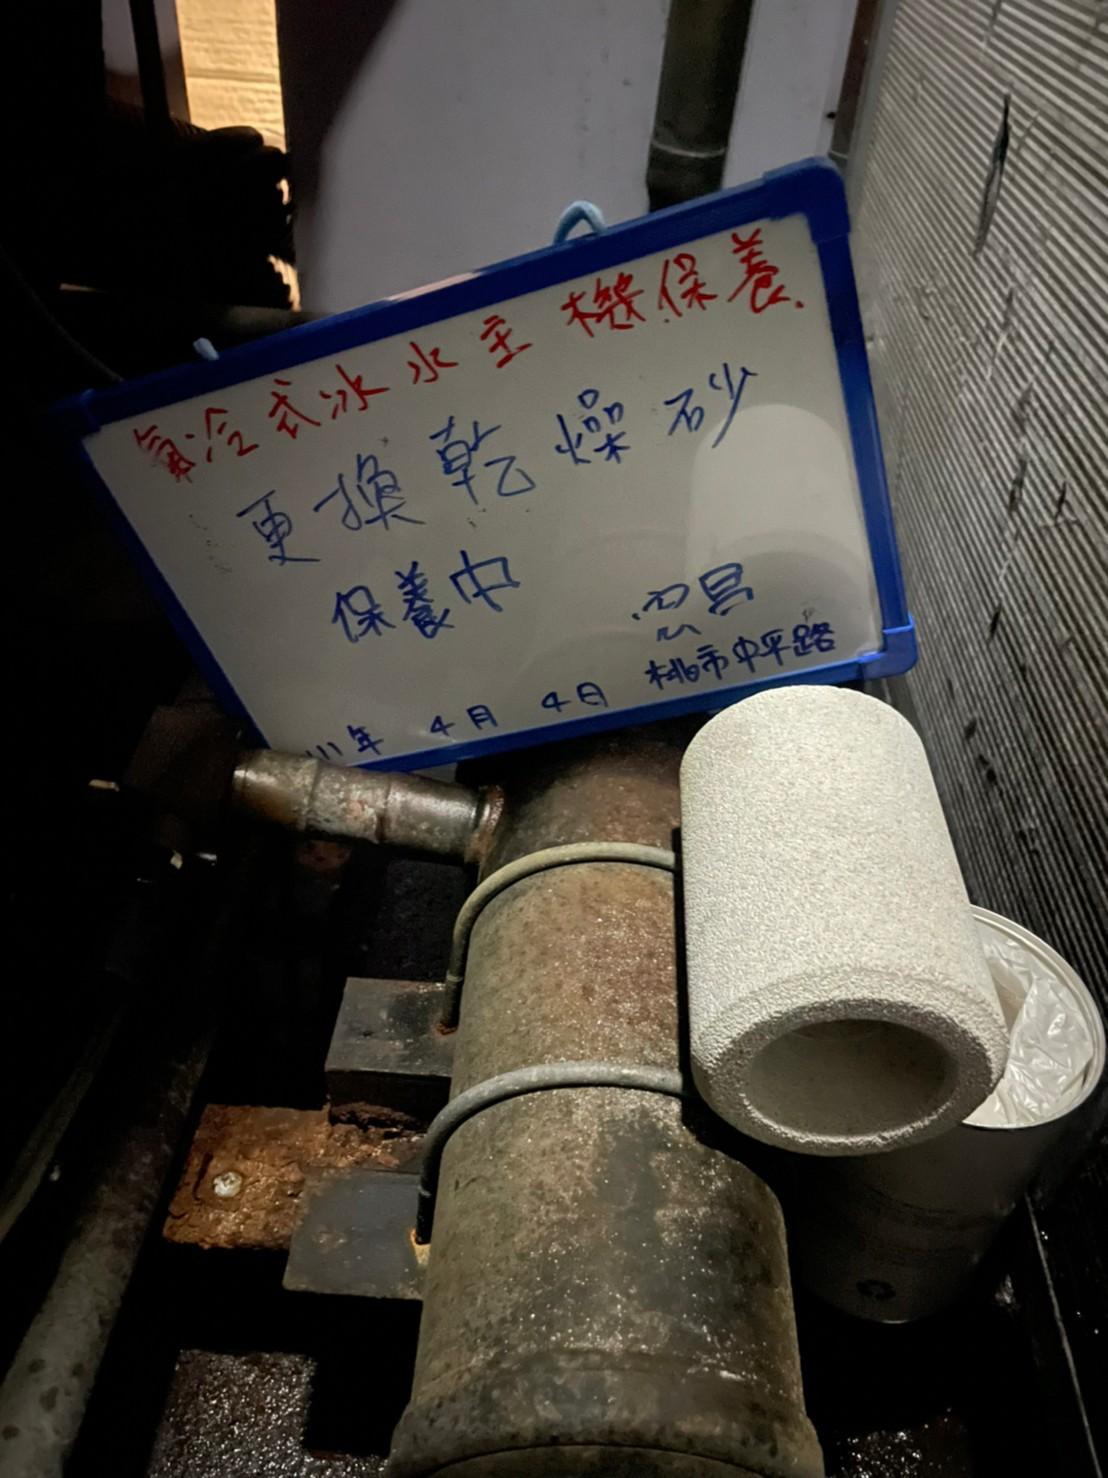 氣冷式冰水主機保養
更換乾燥砂
保養中
忍昌
桃市中平路
111年 4月 4日